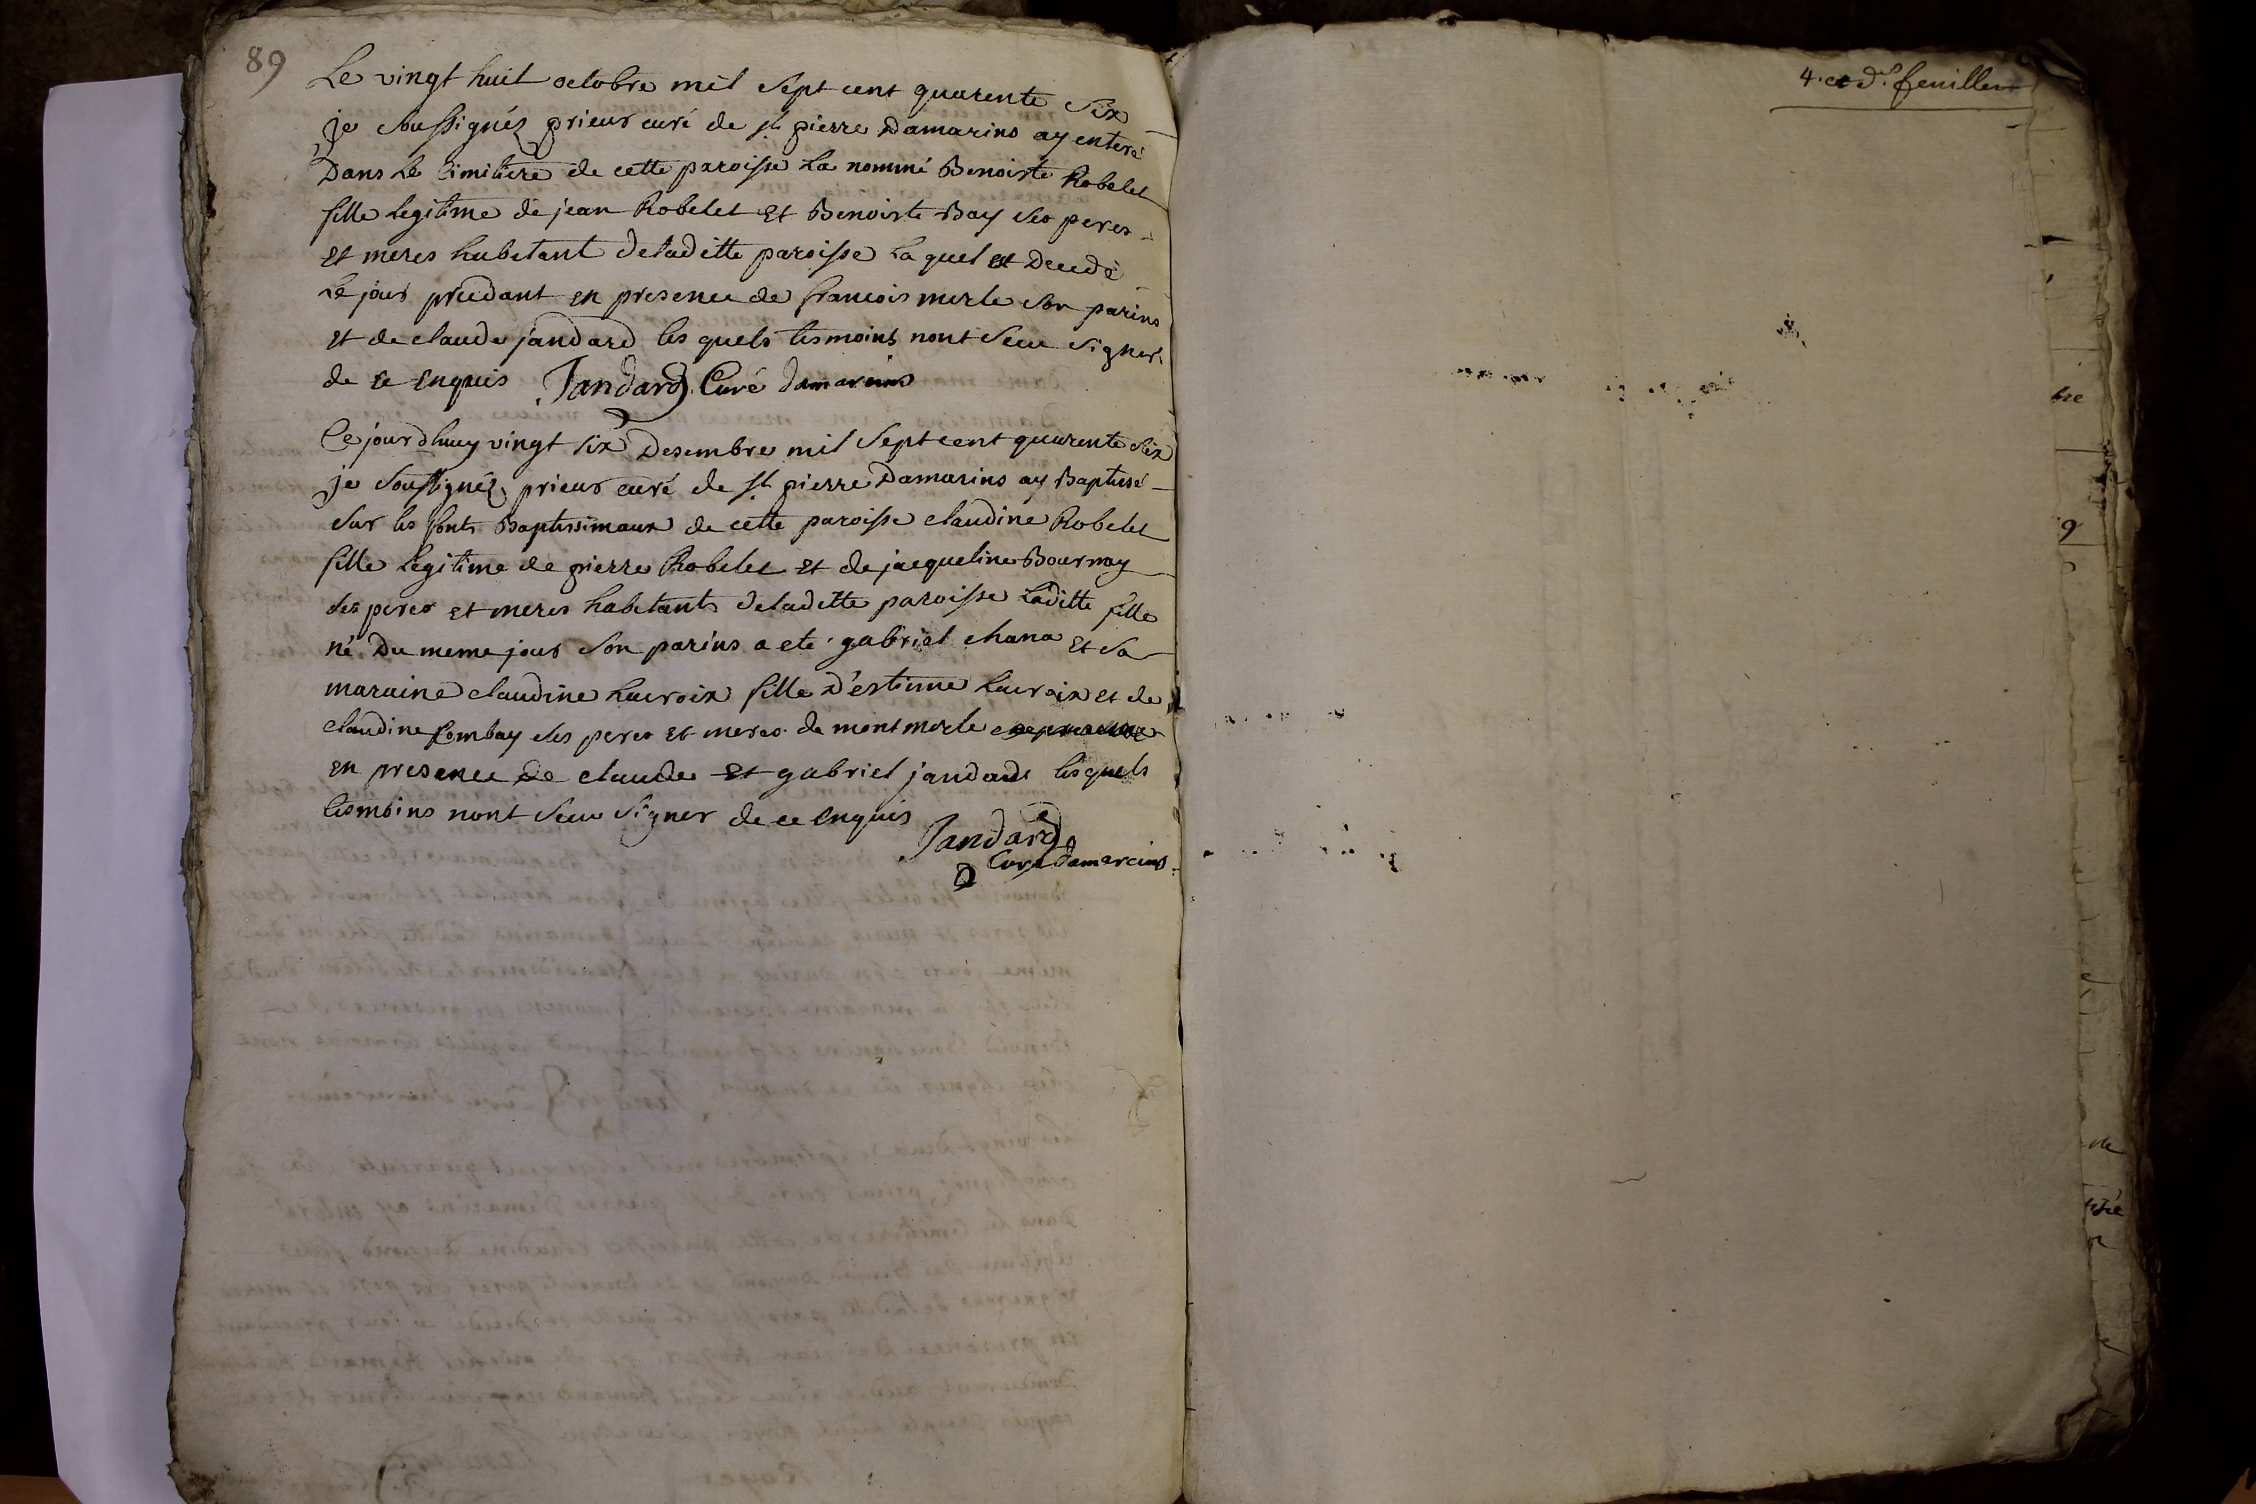 89
Le vingt huit octobre mil sept cent quarente six
je soussignéz prieur curé de st pierre Damarins ay enteré
Dans le Cimitiere de cette paroisse La nommé Benoiste Robelet
fille legitime de jean Robelet et Benoiste Bay ses peres
et meres habetant deladitte paroisse La quel est Decedé
Le jour precedant en presence de francois merle son parins
et de claude jandard les quels tesmoins nont seue signer
de ce enquis Jandard Curé damareins
Ce jourdhuy vingt six Desembre mil sept cent quarente six
je soussignéz prieur curé de st pierre Damarins ay Baptisé
sur les fonts Baptissimaux de cette paroisse claudine Robelet
fille legitime de pierre Robelet et de jacqueline Bournay
ses peres et meres habetants deladitte paroisse Laditte fille
né Du meme jour son parins a eté gabriel chana et sa
maraine claudine Lacroix fille d'estienne Lacroix et de
claudine Combay ses peres et meres de montmerle
en presence de claude et gabriel jandard lesquels
tesmoins nont seue signer de ce enquis
Jandard
Curé damareins
4. et d.r feuillet